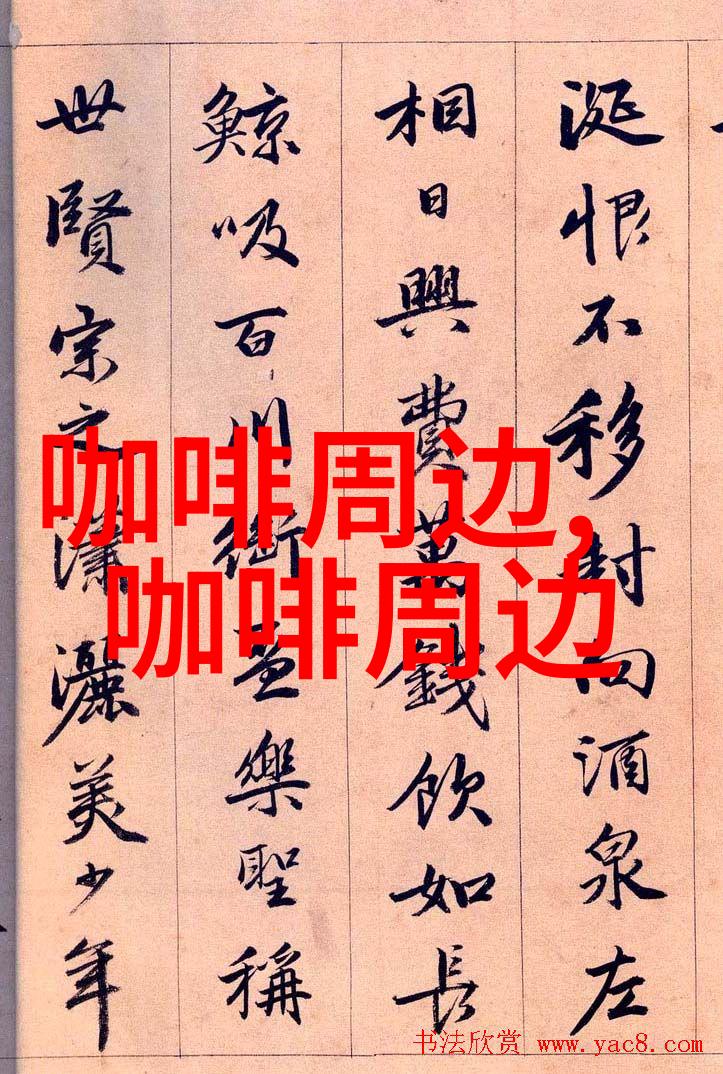 涎恨不移封向酒泉左
相日興費萬錢飲如長
鯨吸百川銜盃樂聖稱
世賢宗之瀟灑美少年
咖啡周边,
咖啡周边
书法欣赏 www.yac8.com